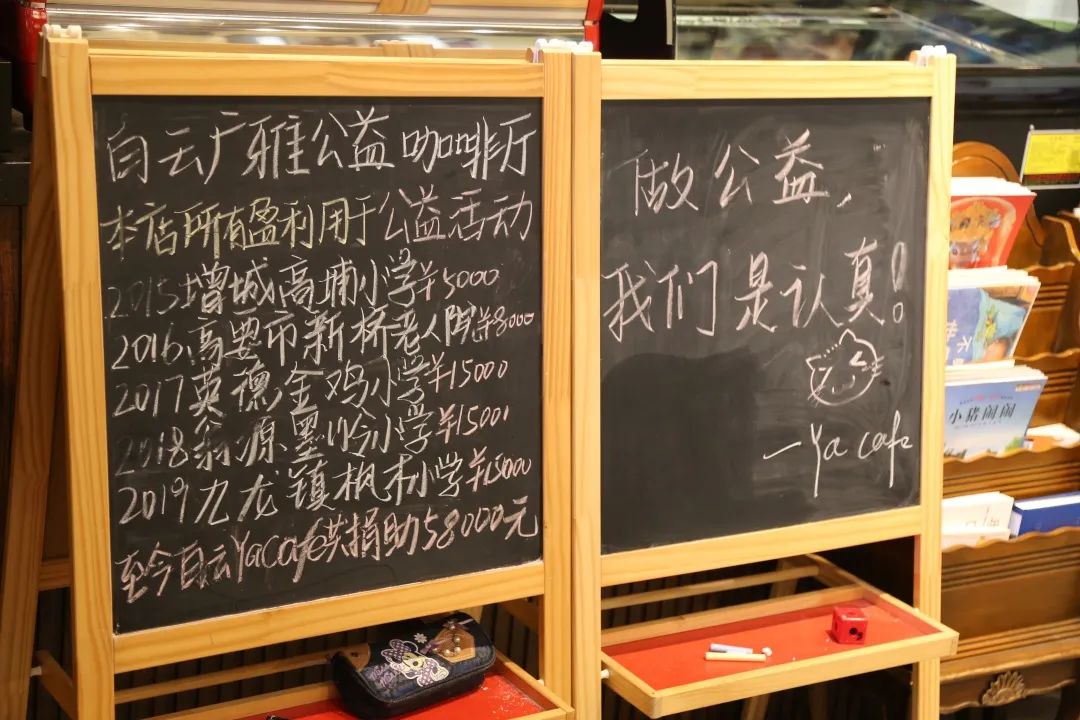 白云广雅公益咖啡厅
本店所有盈利用于公益活动
2015增城高埔小学¥5000
2016高要市新桥老人院¥8000
2017英德金鸡小学¥15000
2018翁源墨岭小学¥15000
2019九龙镇枫木小学¥15000
至今白云Yacafe共捐助58000元
做公益,
我们是认真!
—Ya cafe
小猪闹闹